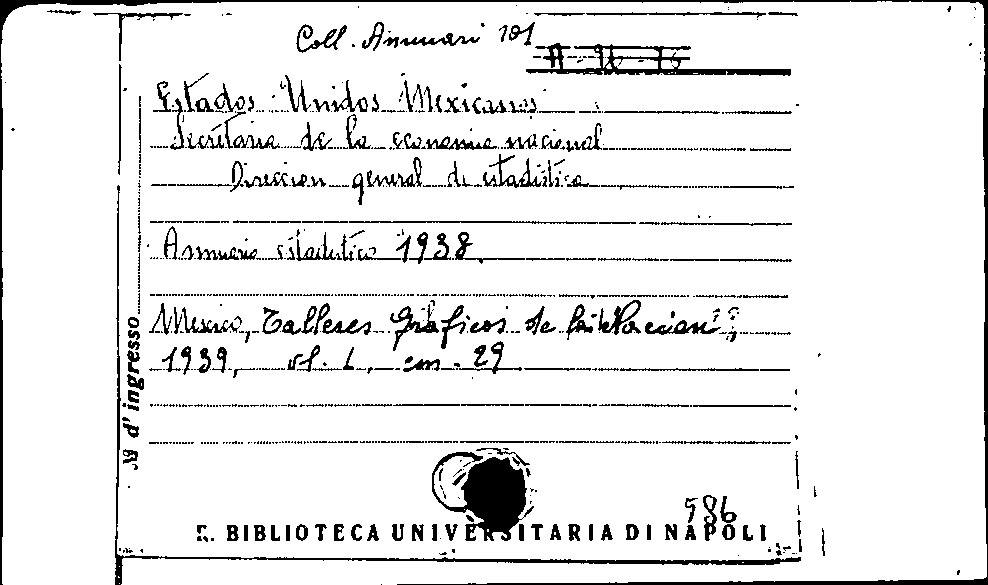 Coll. Annuari 101
Estados Unidos Mexicanos
Secretaria de la economia nacional
Direccion general de estadistica
Annuario estadistico 1938.
Mexico, Talleres Gráficos de la Nacion",
1939, vl. 1, cm. 29
N° d'ingresso
586
R. BIBLIOTECA UNIVERSITARIA DI NAPOLI